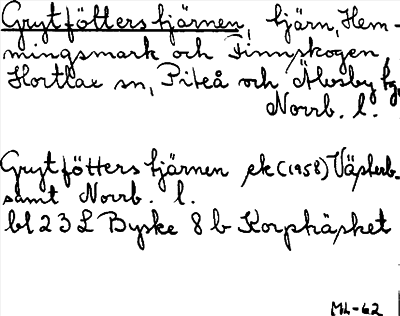 Grytfötterstjärnen, tjärn, Hem-
mingsmark och Finnskogen,
Hortlax sn, Piteå och Älvsby kg,
Norrb. l.
Grytfötterstjärnen ek (1958) Västerb.
samt Norrb. l.
bl 23 L Byske 8 b Korpkäsket
ML-62